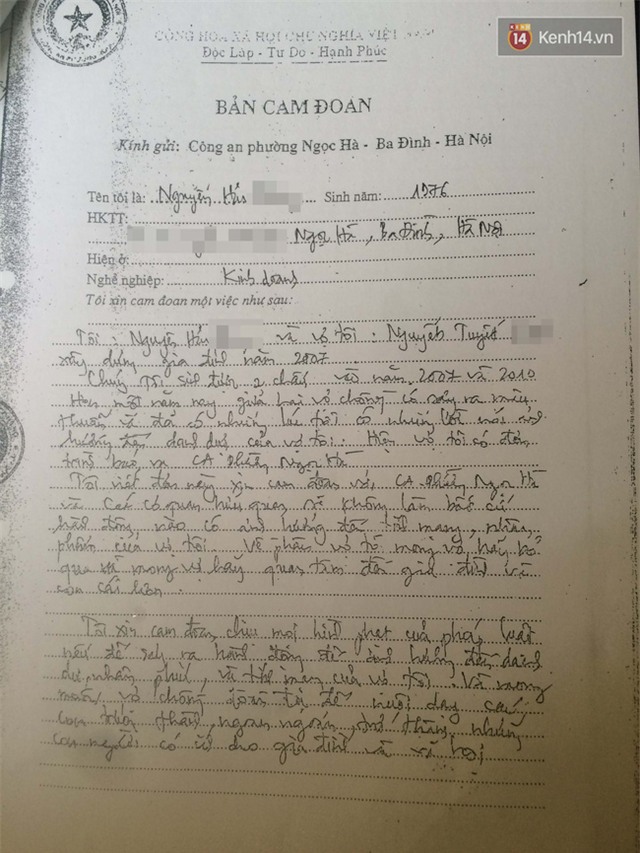 14 Kenh14.vn
CỘNG HÒA XÃ HỘI CHỦ NGHĨA VIỆT NAM
Độc Lập - Tự Do - Hạnh Phúc
BẢN CAM ĐOAN
Kính gửi: Công an phường Ngọc Hà - Ba Đình - Hà Nội
Tên tôi là: Nguyễn Hữu Sinh năm: 1976
HKTT:
Ngọc Hà, Ba Đình, Hà Nội
Hiện ở:
Nghề nghiệp: Kinh doanh
Tôi xin cam đoan một việc như sau:
Tôi: Nguyễn Hữu và vợ tôi: Nguyễn Tuyết
xây dựng gia đình năm 2007
Chúng tôi sinh được 2 cháu vào năm 2007 và 2010
Hơn một năm nay giữa hai vợ chồng có xảy ra mâu
thuẫn và đã có những lúc tôi có những lời nói ảnh
hưởng đến danh dự của vợ tôi. Hiện vợ tôi có đơn
trình báo ra CA Phường Ngọc Hà
Tôi viết đơn này xin cam đoan với CA Phường Ngọc Hà
và các cơ quan hữu quan sẽ không làm bất cứ
hành động nào có ảnh hưởng đến tính mạng, nhân
phẩm của vợ tôi. Về phần vợ tôi mong vợ hãy bỏ
qua và mong vợ hãy quan tâm đến gia đình và
con cái hơn.
Tôi xin cam đoan chịu mọi hình phạt của pháp luật
nếu để xảy ra hành động để ảnh hưởng đến danh
dự, nhân phẩm, và tính mạng của vợ tôi. Và mong
muốn vợ chồng đoàn tụ để nuôi dạy các
con khôn thành, ngoan ngoãn, trở thành những
con người có ích cho gia đình và xã hội